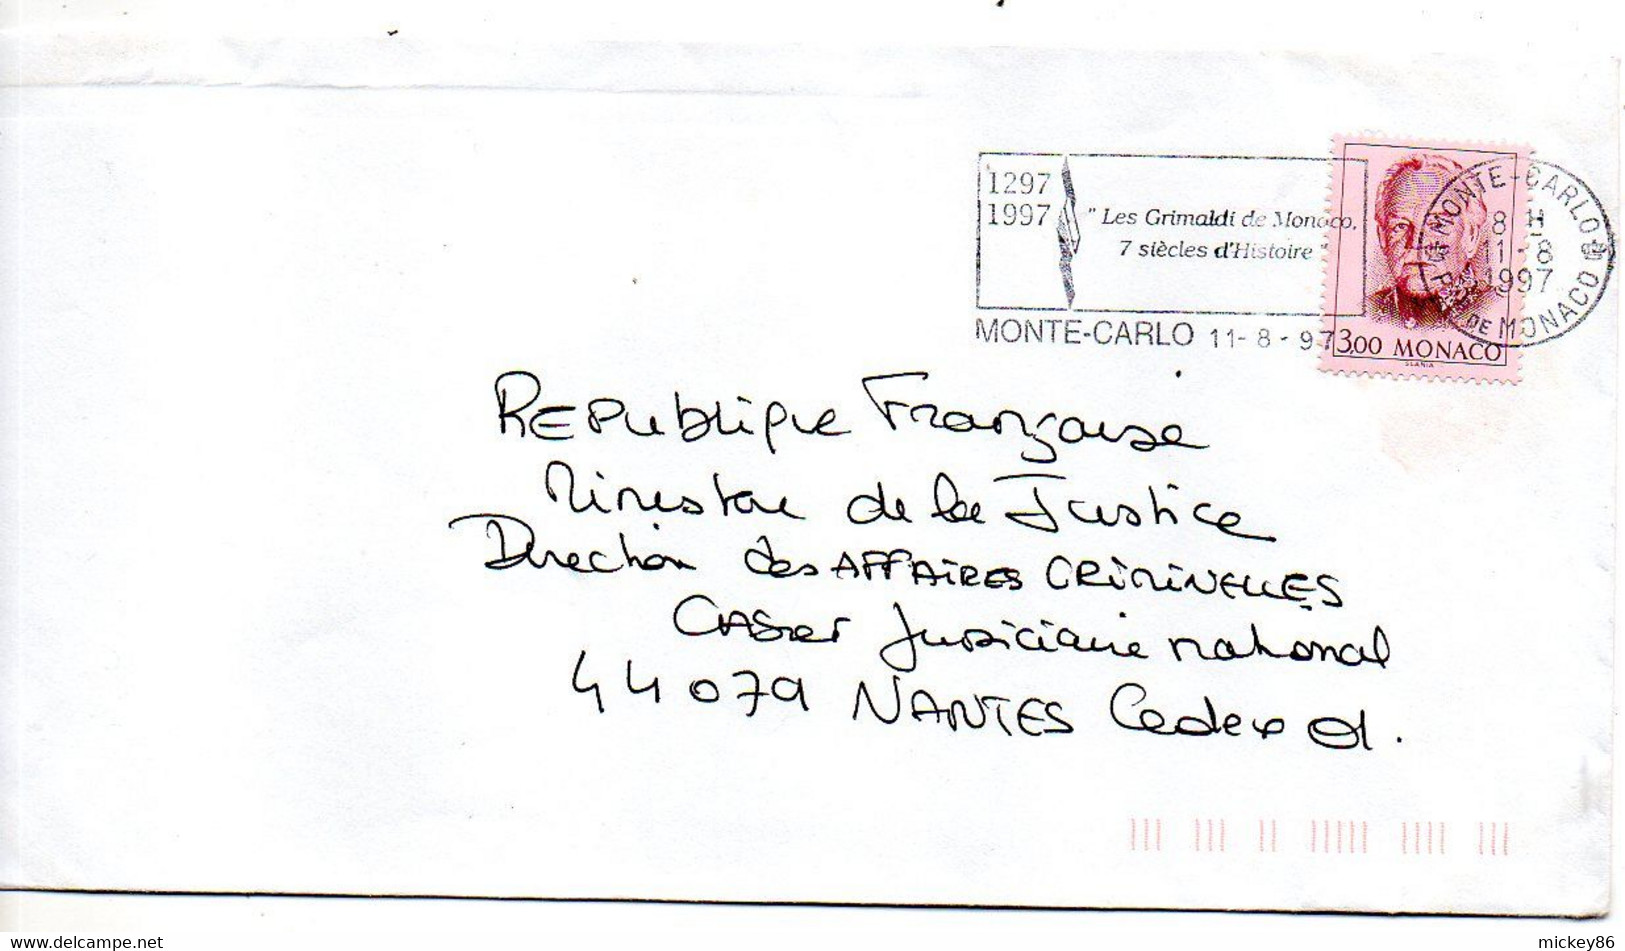 1297
1997
" Les Grimaldi de Monaco,
7 siècles d'Histoire "
MONTE-CARLO 11-8-97
MONTE-CARLO
8 H
11-8
1997
PTÉ DE MONACO
3,00 MONACO
SLANIA
République Française
Ministère de la Justice
Direction des AFFAIRES CRIMINELLES
Casier judiciaire national
44079 NANTES Cedex 01.
www.delcampe.net
mickey86